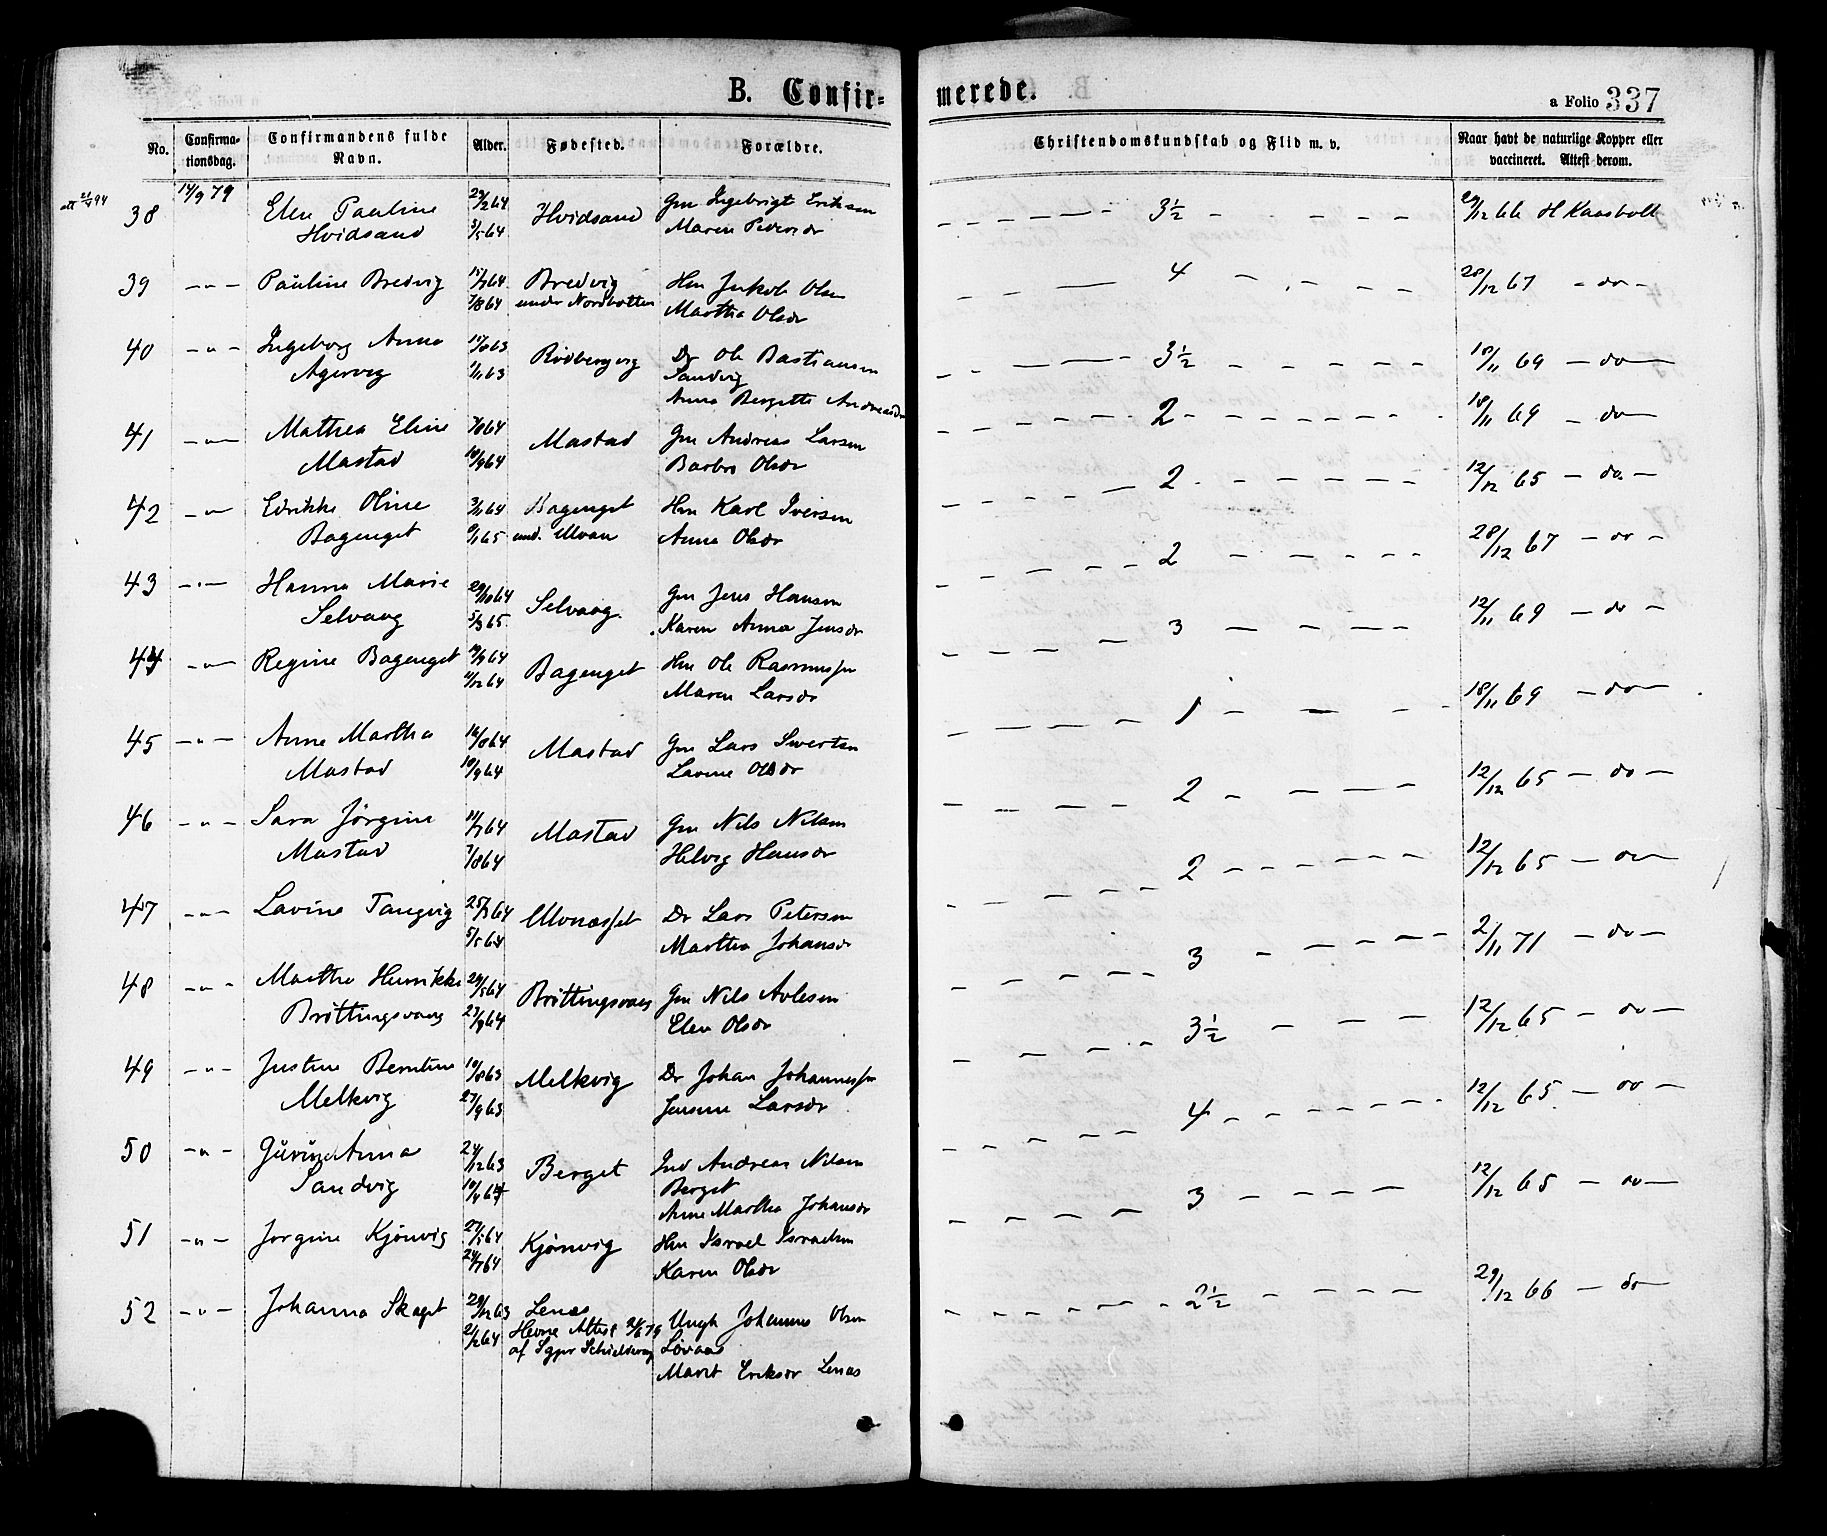 B. Confir-
merede.
a Folio 337
No.
Confirma-
tionsdag.
Confirmandens fulde
Navn.
Alder.
Fødested.
Forældre.
Christendomskundskab og Flid m. v.
Naar havt de naturlige Kopper eller
vaccineret. Attest derom.
att 94
38 14/9 79 Elen Pauline 64 Hvidsand Gm Ingebrigt Eriksen
Hvidsand 3/5 64 Maren Pedersdr
— — — 3½ — — — 29/12 66 H Kaasbøll
39 -"- Pauline Bredvig 64 Bredvig Hm Jakob Olsen
7/8 64 under Nordbotten Martha Olsdr
— — — 4 — — — 28/12 67 - do -
40 -"- Ingeborg Anna 63 Rødbergvig Dr Ole Bastiansen
Agervig 1/11 63 Sandvig
Anna Bergitte Andreasdr
— — — 3½ — — — 18/11 69 - do -
41 -"- Mathea Eline 7/8 64 Mastad Gm Andreas Larsen
Mastad 18/9 64 Barbro Olsdr
— — — 2 — — — 18/11 69 - do -
42 -"- Edrikke Oline 3/11 64 Bagenget Hm Karl Iversen
Bagenget 8/1 65 und. Ulvan Anna Olsdr
— — — 2 — — — 12/12 65 - do -
43 -"- Hanna Marie 29/10 64 Selvaag Gm Jens Hansen
Selvaag 5/3 65 Karen Anna Jensdr
— — — 2 — — — 28/12 67 - do -
44 -"- Regine Bagenget 64 Bagenget Hm Ole Rasmussen
11/12 64 Maren Larsdr
— — — 3 — — — 12/11 69 - do -
45 -"- Anne Martha 16/8 64 Mastad Gm Lars Sivertsen
Mastad 18/9 64 Lavine Olsdr
— — — 1 — — — 18/11 69 - do -
46 -"- Sara Jørgine 11/7 64 Mastad Gm Nils Nilsen
Mastad 7/8 64 Helvig Hansdr
— — — 2 — — — 12/12 65 - do -
47 -"- Lavina Tangvig 25/3 64 Ulvnesset Dr Lars Petersen
5/5 64 Martha Johansdr
— — — 2 — — — 12/12 65 - do -
48 -"- Martha Henrikke 64 Brøttingsvaag Gm Nils Avlesen
Brøttingsvaag 64 Elen Olsdr
— — — 3 — — — 2/11 71 - do -
49 -"- Justine Berntine 10/8 63 Melkvig Dr Johan Johannessen
Melkvig 27/9 63 Jensine Larsdr
— — — 3½ — — — 12/12 65 - do -
50 -"- Gurine Anna 24/12 63 Berget Ind Andreas Nilsen
Sandvig 10/4 64 Berget
Anne Martha Johansdr
— — — 4 — — — 12/12 65 - do -
51 -"- Jorgine Kjønvig 27/5 64 Kjønvig Hm Israel Israelsen
24/7 64 Karen Olsdr
— — — 3 — — — 12/12 65 - do -
52 -"- Johanna Skaget 29/12 63 Lenæs Ungk Johannes Olsen
21/2 64 Hevne Attest 79 Løvaas
af Sgpr Schielderup Marit Eriksdr Lenæs
— — — 2½ — — — 29/12 66 - do -